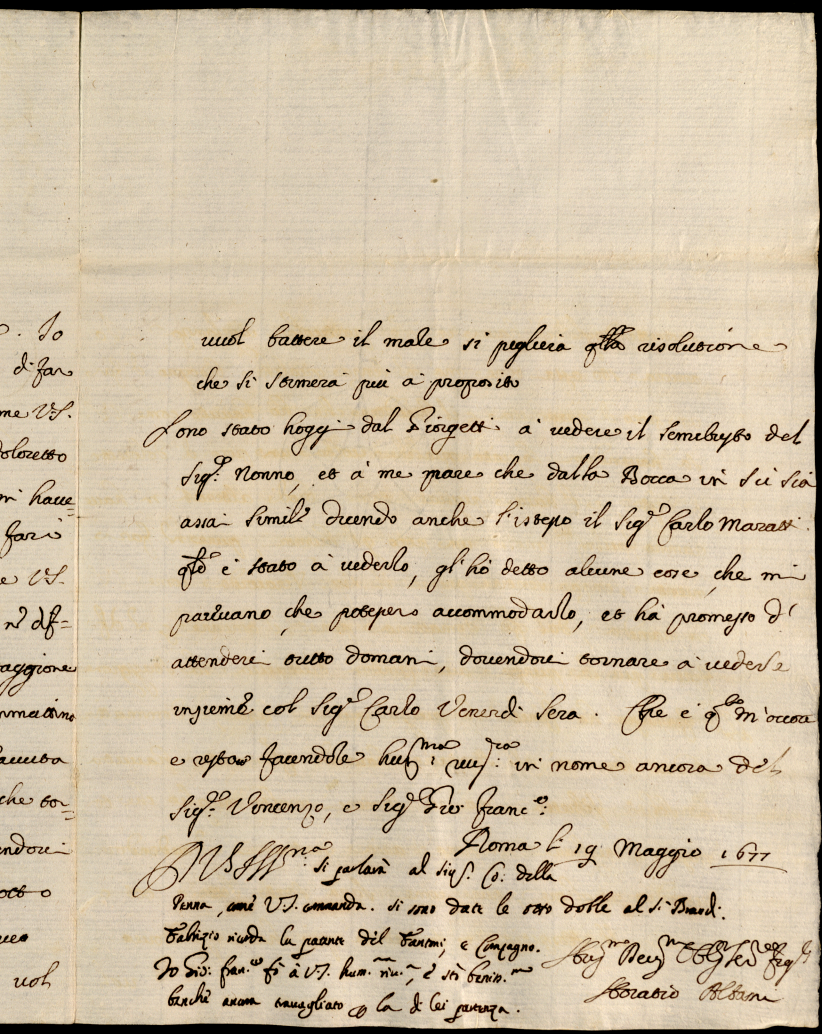 . Io
di far
me V.S.
doloretto
mi have=
farà
e V.S.
aggione
mmattino
che tor=
endovi
vol
vuol battere il male si peglierà qlla risolutione
che si stimerà più à proposito
Sono stato hoggi dal Giorgetti à vedere il semebusto del
Sigr. Nonno, et à me pare che dalla Bocca in sù sia
assai simile dicendo anche l'istesso il Sigr Carlo Maratti.
qdo è stato à vederlo, gl'hò detto alcune cose, che mi
parevano che potessero accommodarlo, et hà promesso d'
attendervi tutto domani, dovendoci tornare à vederlo
insieme col Sigr Carlo Venerdi sera. Che è qto m'occorre
e resto facendole humma rivza in nome ancora del
Sigr. Vincenzo, e Sigr Gio Franco:
Roma li 19 Maggio 1677
D V.S. Illma
si parlarà al Sigr. Co: della
Penna, come V.S. comanda. si sono date le otto doble al Sr Brandi.
Fabrizio ricorda la patente del Fantini, e Compagno.
Io Gio: Fran.co fò à V.S. hum.ma riv.a, e stò beniss.mo
benche ancora travagliato p la di lei partenza.
Horatio Albani